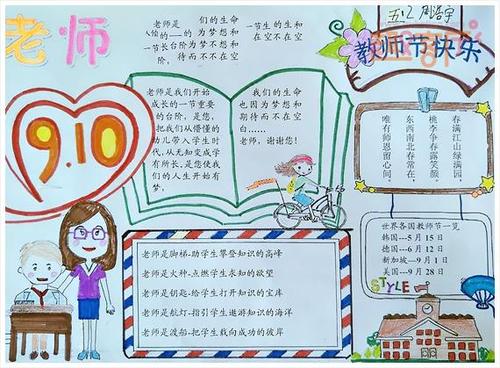 老师
五.2 周浩宇
教师节快乐
9.10
老师是 们的生命
人给的——的 为梦想和
一节长台阶为梦不想和
阶, 待而不不在空
一节生的生和
在空不在空
老师是我们开始
成长的一节重要
的台阶,是您,
把我们从懵懂的
幼儿带入学生时
代,从无知变成学
有所长,是您使我
们的人生开始有
梦,
我们的生命
也因为梦想和
期待而不在空
白……
老师,谢谢您!
春满江山绿满园,
桃李争春露笑颜。
东西南北春常在,
唯有师恩留心间。
世界各国教师节一览
韩国—5月15日
德国—6月12日
新加坡—9月1日
美国—9月28日
STYLE
老师是脚梯-助学生攀登知识的高峰
老师是火种-点燃学生求知的欲望
老师是钥匙-给学生打开知识的宝库
老师是航灯-指引学生遨游知识的海洋
老师是渡船-把学生载向成功的彼岸